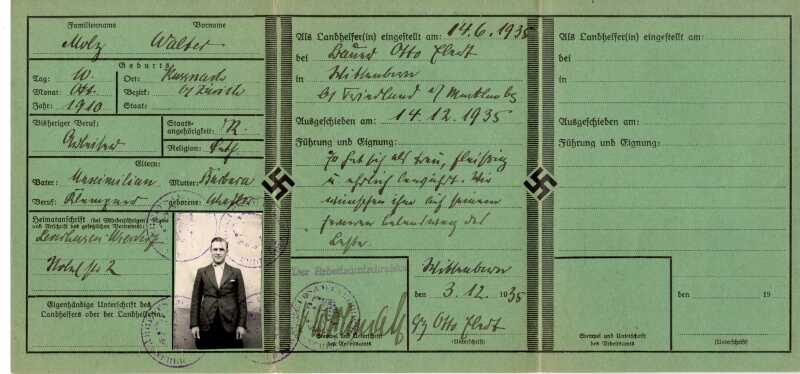 Familienname Vorname
Molz Walter
Geburts
Tag: 10. Ort: Kusnach
Monat: Okt. Bezirk: b/ Zürich
Jahr: 1910 Staat:
Bisheriger Beruf: Staats-
angehörigkeit: R.
Arbeiter
Religion: Kath.
Eltern:
Vater: Maximilian Mutter: Barbara
Beruf: Klempner geborene:
Heimatanschrift (bei Minderjährigen: Name
und Anschrift des gesetzlichen Vertreters):
Leverkusen Wiesdorf
Nobel str 2
Eigenhändige Unterschrift des
Landhelfers oder der Landhelferin:
Als Landhelfer(in) eingestellt am: 14.6.1935
bei Bauer Otto
in Wittenborn
b/ Friedland i/ Mecklenbg
Ausgeschieden am: 14.12.1935
Führung und Eignung:
Er hat sich als treu, fleissig
u ehrlich bewährt. Wir
wünschen ihm auf seinem
ferneren Lebensweg das
Beste.
Der Arbeitsamtsdirektor
Wittenborn
den 3.12. 1935
Otto
Stempel und Unterschrift
des Arbeitsamts
(Unterschrift)
Als Landhelfer(in) eingestellt am:
bei
in
Ausgeschieden am:
Führung und Eignung:
den 19
Stempel und Unterschrift
des Arbeitsamts
(Unterschrift)